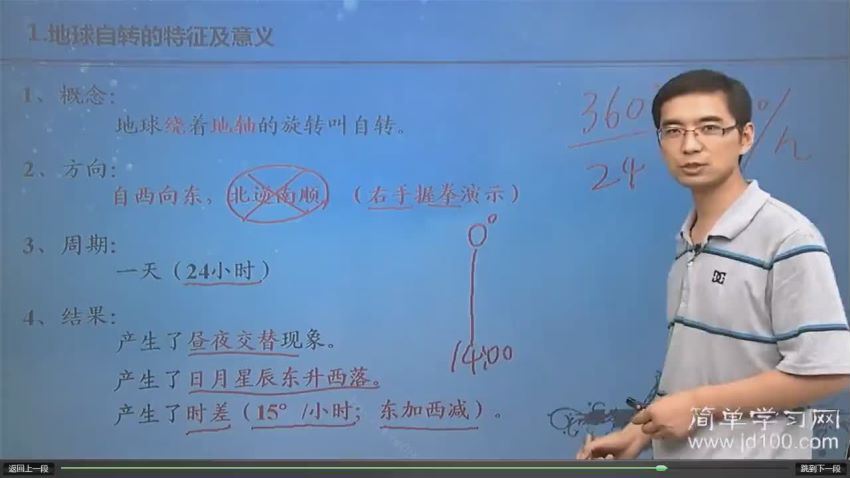 1.地球自转的特征及意义
1、概念：
地球绕着地轴的旋转叫自转。
2、方向：
自西向东，北逆南顺，（右手握拳演示）
3、周期：
一天（24小时）
4、结果：
产生了昼夜交替现象。
产生了日月星辰东升西落。
产生了时差（15° /小时；东加西减）。
360°
24
°/h
0°
14:00
DC
简单学习网
www.jd100.com
返回上一段
跳到下一段